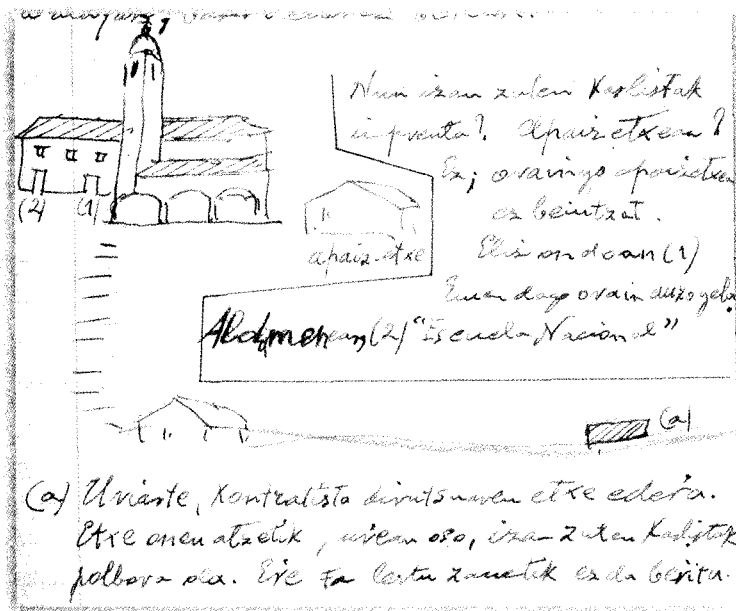 Nun izan zuten Karlistak
imprenta? Apaiz etxean?
Ez; oraingo apaizetxean
ez beintzat.
Eliz ondoan (1)
Emen dago orain
(2) (1)
apaiz-etxe
Aldamenean (2) "Escuela Nacional"
(a)
(a) Uriarte, Kontratista etxe ederra.
Etxe onen atzetik, urean oso, izan zuten Karlistak
polbora ola. Ere ta lertu zanetik ez da berritu.